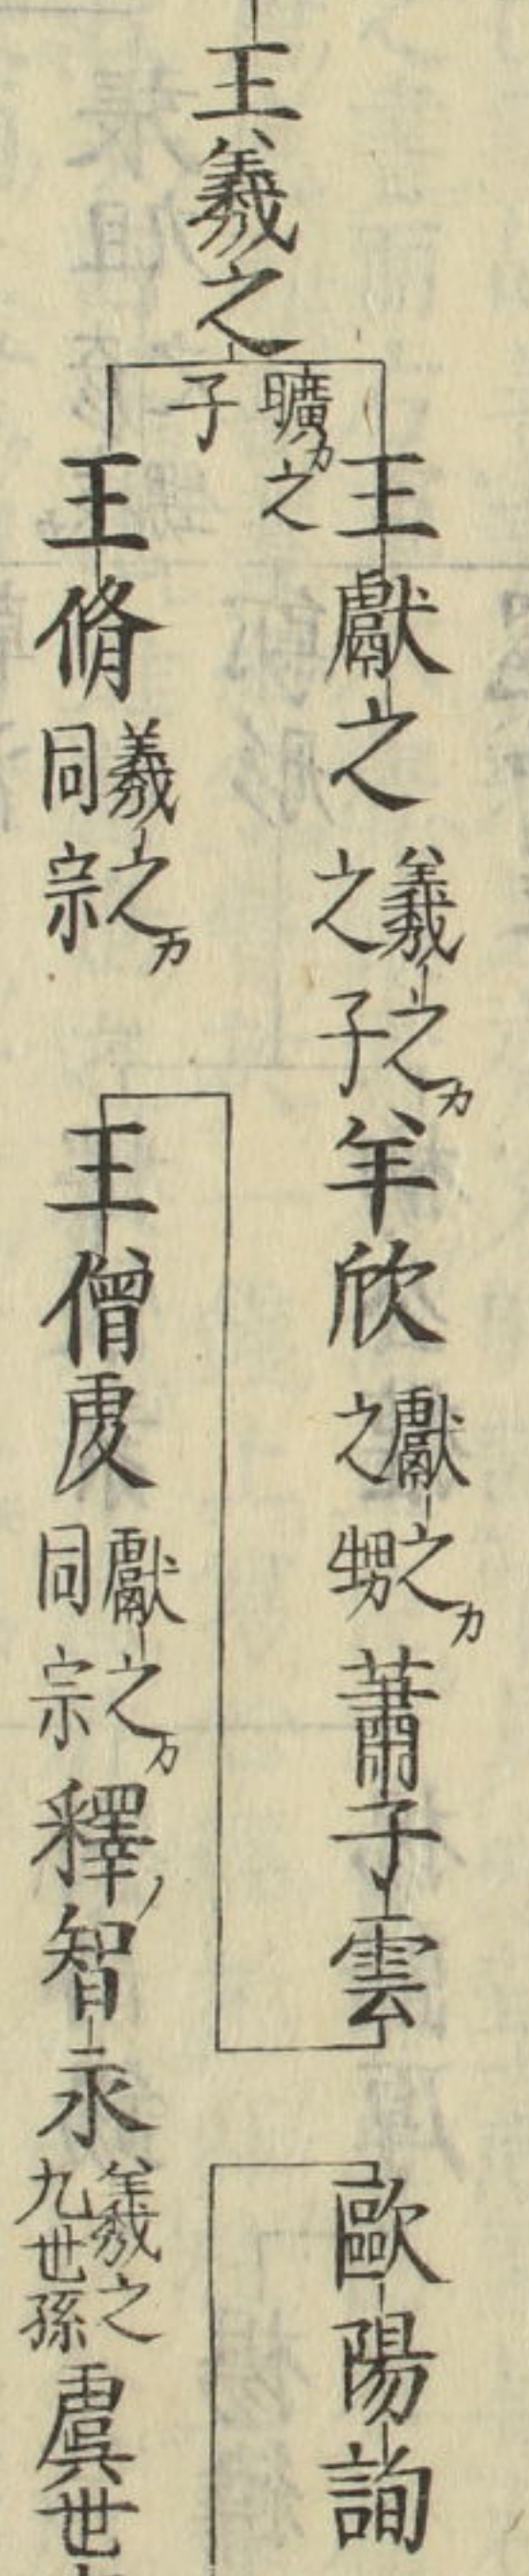 王羲之
曠カ之
子
王獻之
羲之カ
之子
羊欣
獻之カ
之甥
蕭子雲
王脩
羲之カ
同宗
王僧虔
獻之カ
同宗
釋智永
羲之
九世孫
虞世
歐陽詢